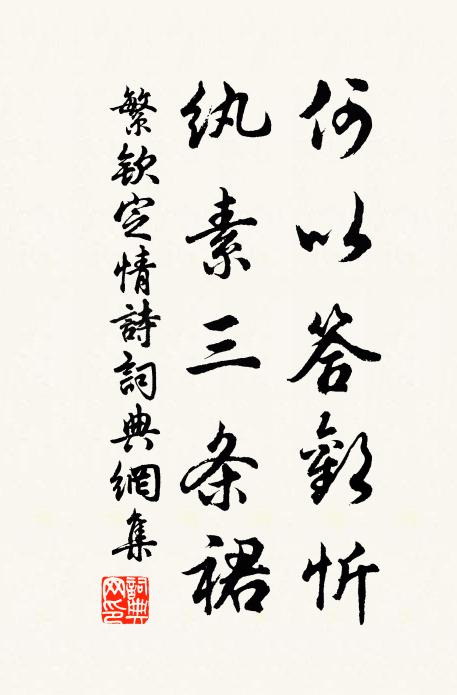 何以答歡忻
紈素三条裙
繁欽定情詩詞典網集